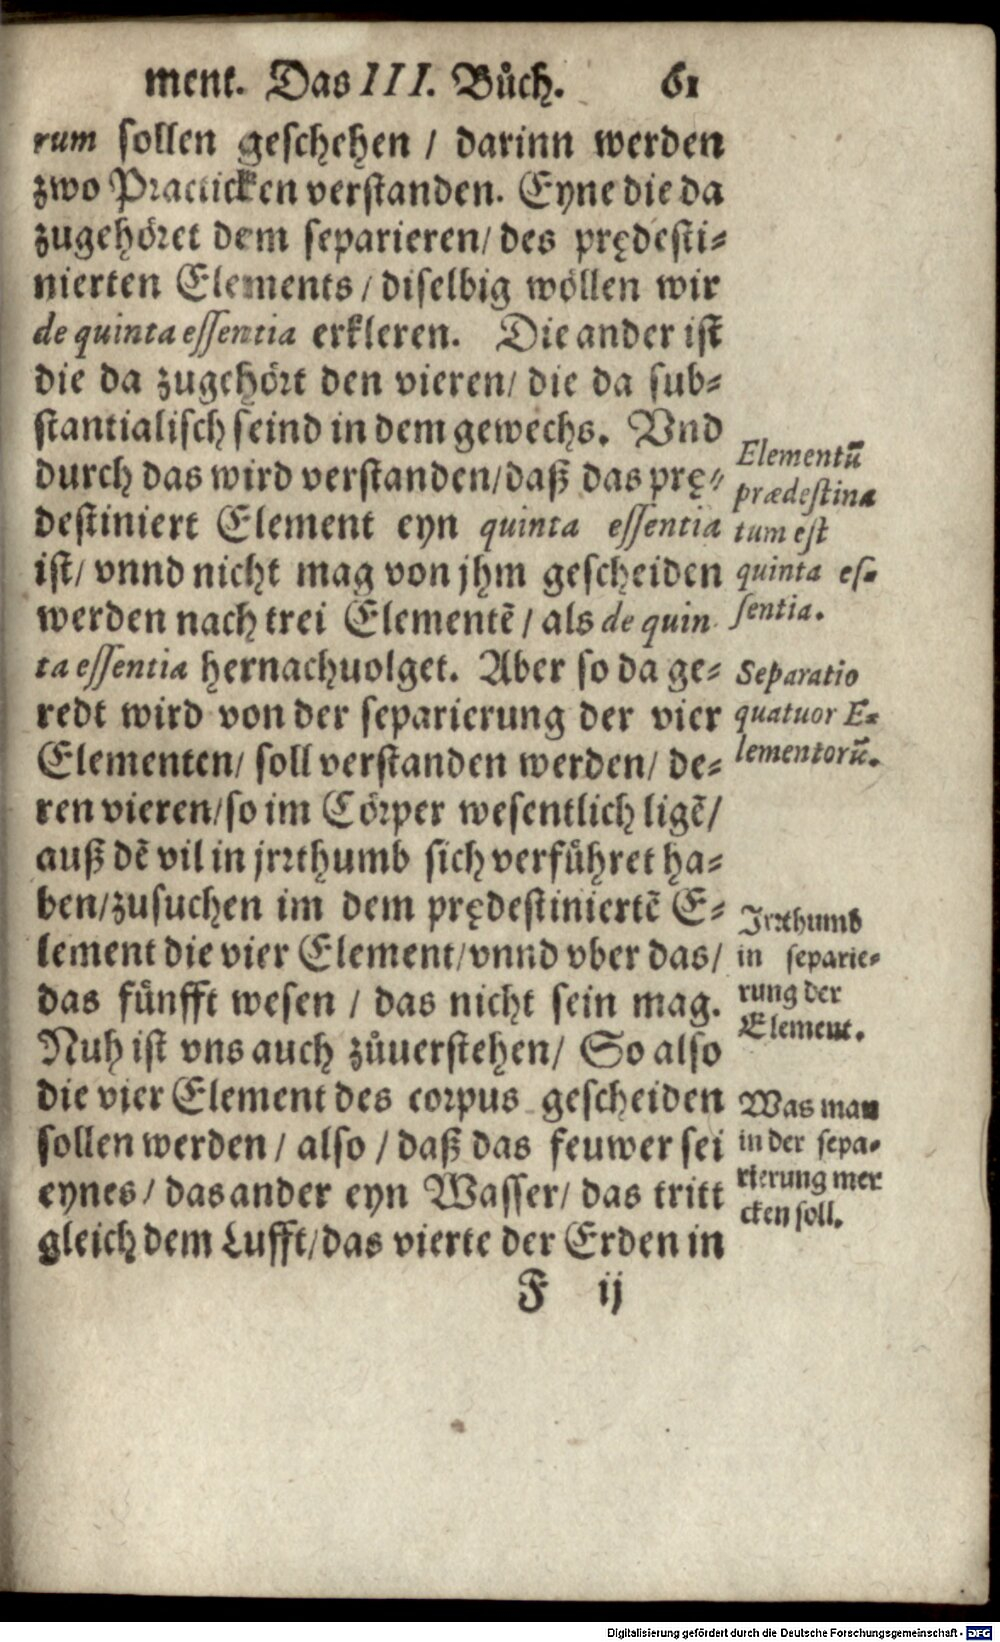 ment. Das III. Bůch. 61
rum sollen geschehen / darinn werden
zwo Practicken verstanden. Eyne die da
zugehöret dem separieren / des prędesti⸗
nierten Elements / diselbig wöllen wir
de quinta essentia erkleren. Die ander ist
die da zugehört den vieren / die da sub⸗
stantialisch seind in dem gewechs. Vnd
durch das wird verstanden / daß das prę⸗
destiniert Element eyn quinta essentia
ist / vnnd nicht mag von jhm gescheiden
werden nach trei Elementē / als de quin
ta essentia hernachuolget. Aber so da ge⸗
redt wird von der separierung der vier
Elementen / soll verstanden werden / de⸗
ren vieren / so im Cörper wesentlich ligē /
auß dē vil in jrrthumb sich verführet ha⸗
ben / zusuchen im dem prędestiniertē E⸗
lement die vier Element / vnnd vber das /
das fünfft wesen / das nicht sein mag.
Nuh ist vns auch zůuerstehen / So also
die vier Element des corpus gescheiden
sollen werden / also / daß das feuwer sei
eynes / das ander eyn Wasser / das tritt
gleich dem Lufft / das vierte der Erden in
F ij
Elementū
prædestina
tum est
quinta es⸗
sentia.
Separatio
quatuor E⸗
lementorū.
Jrrthumb
in separie⸗
rung der
Element.
Was man
in der sepa⸗
rierung mer
cken soll.
Digitalisierung gefördert durch die Deutsche Forschungsgemeinschaft - DFG